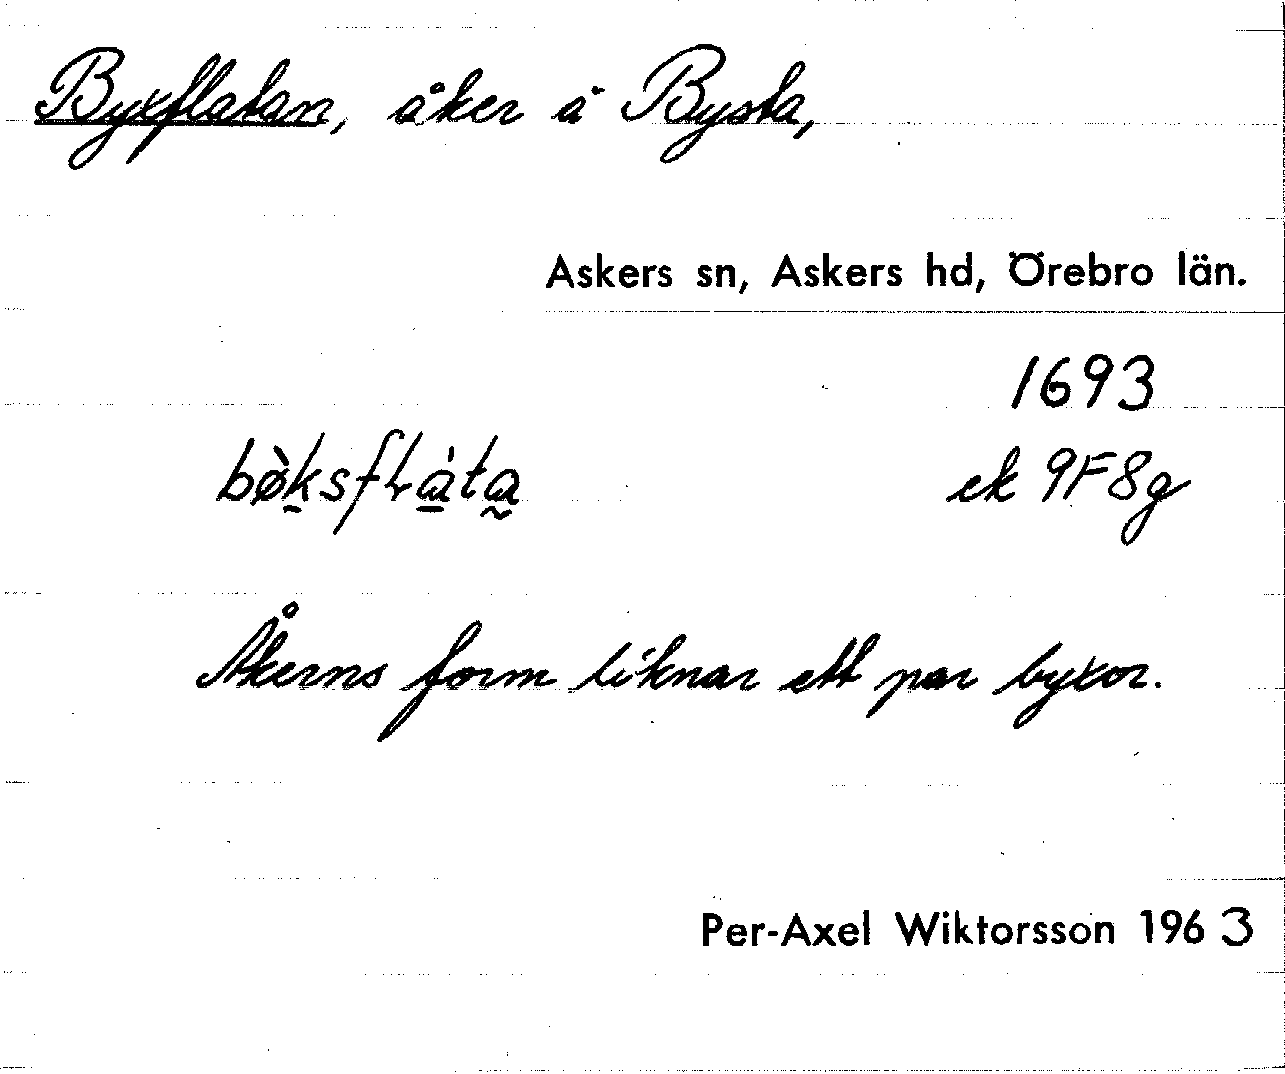 Byxflatan, åker å Bysta,
Askers sn, Askers hd, Örebro län.
1693
bø̀ksflàta ek 9F8g
Åkerns form liknar ett par byxor.
Per-Axel Wiktorsson 1963